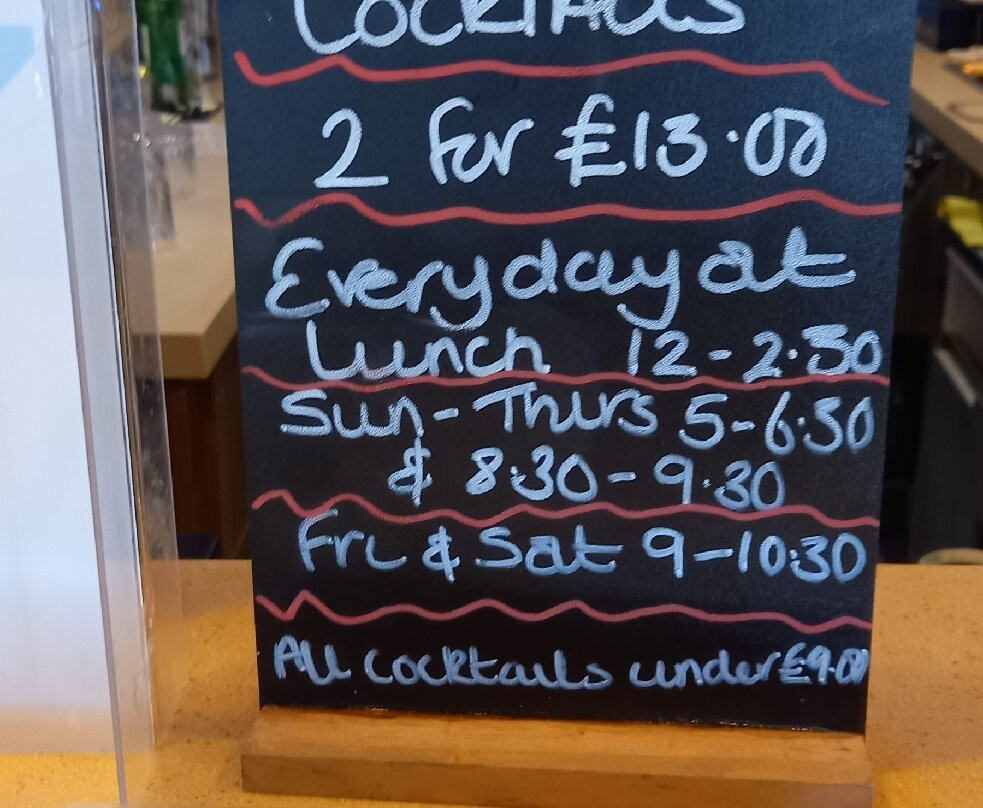 COCKTAILS
2 for £13.00
Everyday at
Lunch 12-2.30
Sun-Thurs 5-6.30
& 8.30-9.30
Fri & Sat 9-10.30
All cocktails under £9.00